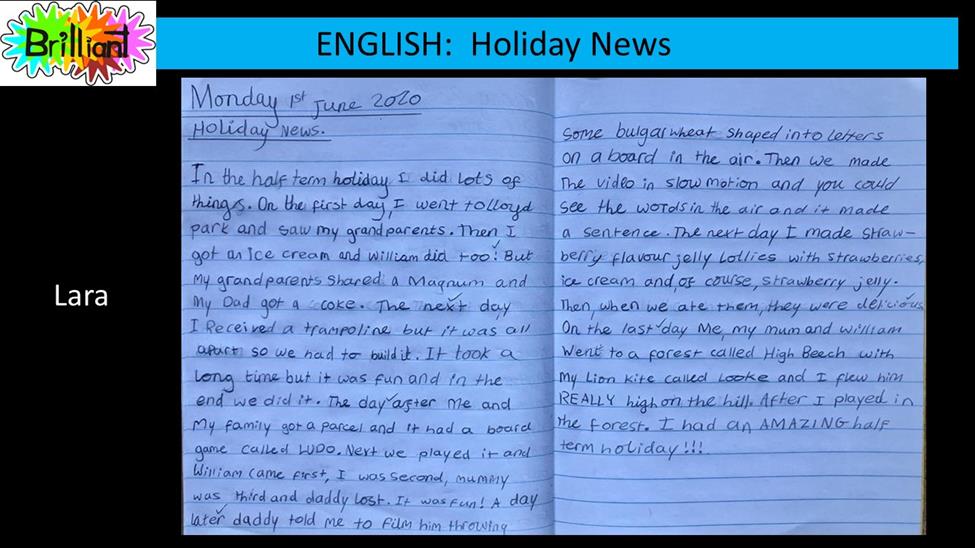 Brilliant
ENGLISH: Holiday News
Lara
Monday 1st June 2020
Holiday News.
In the half term holiday I did lots of
things. On the first day, I went to lloyd
park and saw my grandparents. Then I
got an ice cream and William did too! But
my grandparents shared a Magnum and
My Dad got a coke. The next day
I Received a trampoline but it was all
apart so we had to build it. It took a
long time but it was fun and in the
end we did it. The day after Me and
My family got a parcel and it had a board
game called LUDO. Next we played it and
William came first, I was second, mummy
was third and daddy lost. It was fun! A day
later daddy told me to film him throwing
some bulgar wheat shaped into letters
on a board in the air. Then we made
the video in slow motion and you could
see the words in the air and it made
a sentence. The next day I made straw-
berry flavour jelly lollies with strawberries,
ice cream and, of course, strawberry jelly.
Then, when we ate them, they were delicious.
On the last day Me, my mum and William
Went to a forest called High Beech with
My Lion kite called Looke and I flew him
REALLY high on the hill. After I played in
the forest. I had an AMAZING half
term holiday!!!